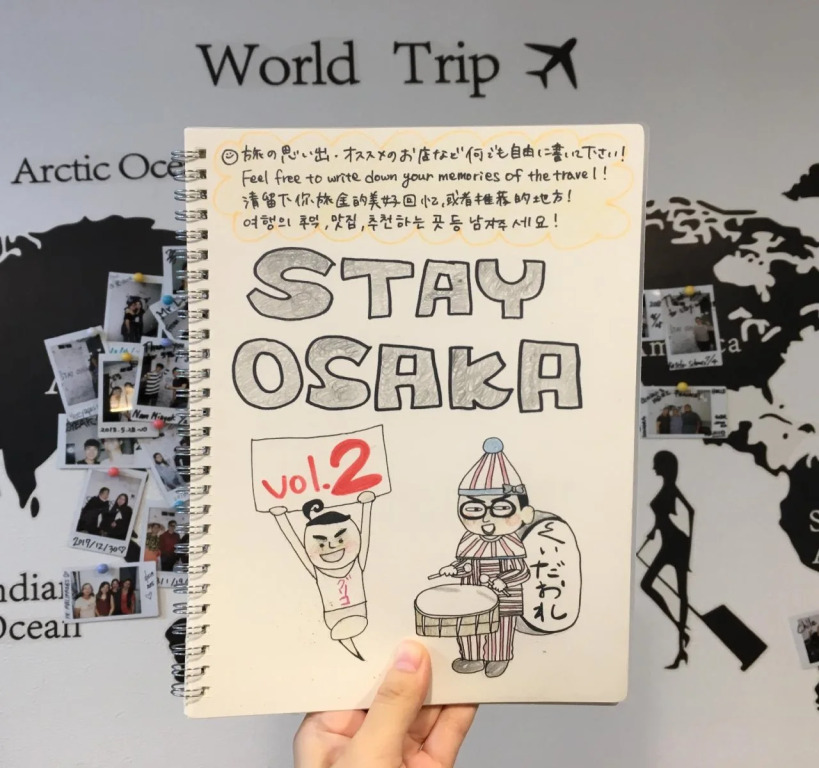 World Trip
Arctic Oce
旅の思い出・オススメのお店など何でも自由に書いて下さい!
Feel free to write down your memories of the travel!
清留下你旅途的美好回忆,或者推荐的地方!
여행의 추억,맛집,추천하는 곳 등 남겨주세요!
STAY
OSAKA
vol.2
くいだおれ
2019/12/30
ndian
Ocean